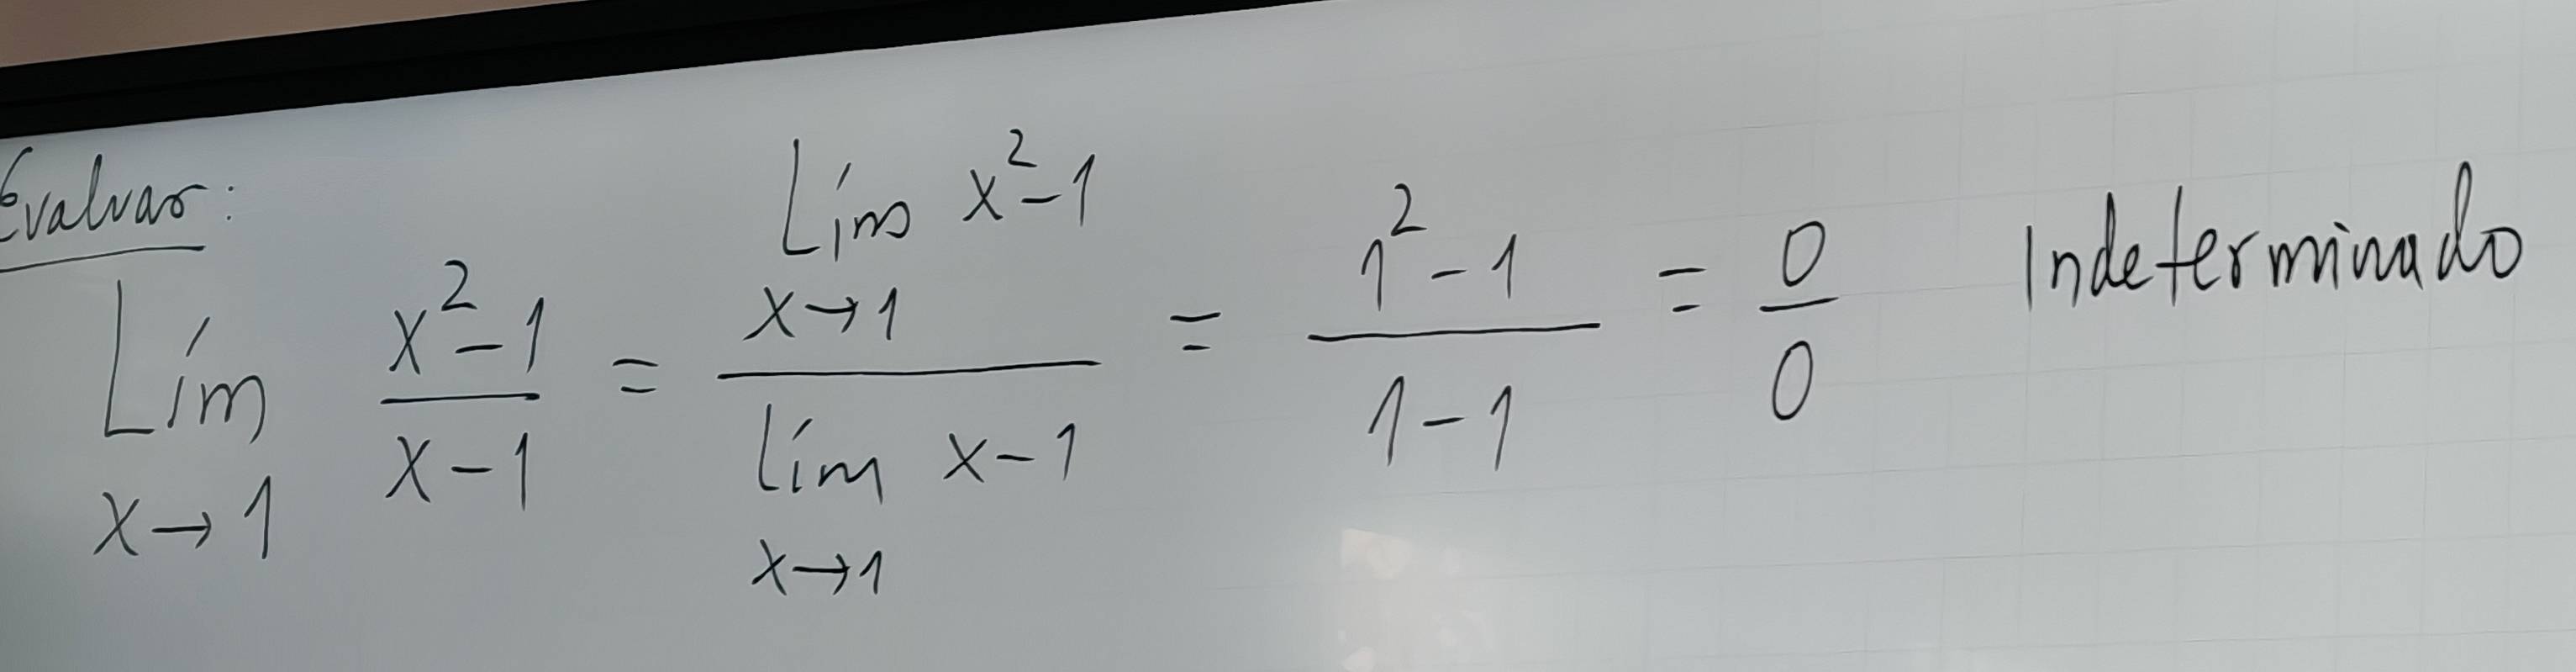 Evaluar:
Lím x→1 (x²-1)/(x-1) = (Lím x→1 x²-1)/(lím x→1 x-1) = (1²-1)/(1-1) = 0/0 Indeterminado